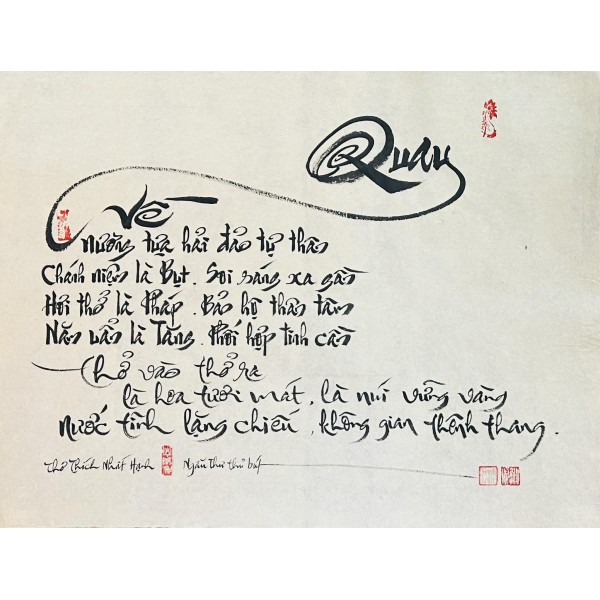 Quay
Về
nương tựa hải đảo tự thân
Chánh niệm là Bụt. Soi sáng xa gần
Hơi thở là Pháp. Bảo hộ thân tâm
Năm uẩn là Tăng. Phối hợp tinh cần
Thở vào thở ra
là hoa tươi mát, là núi vững vàng
nước tĩnh lặng chiếu, không gian thênh thang.
Thơ Thích Nhất Hạnh Ngẫu Thư thủ bút